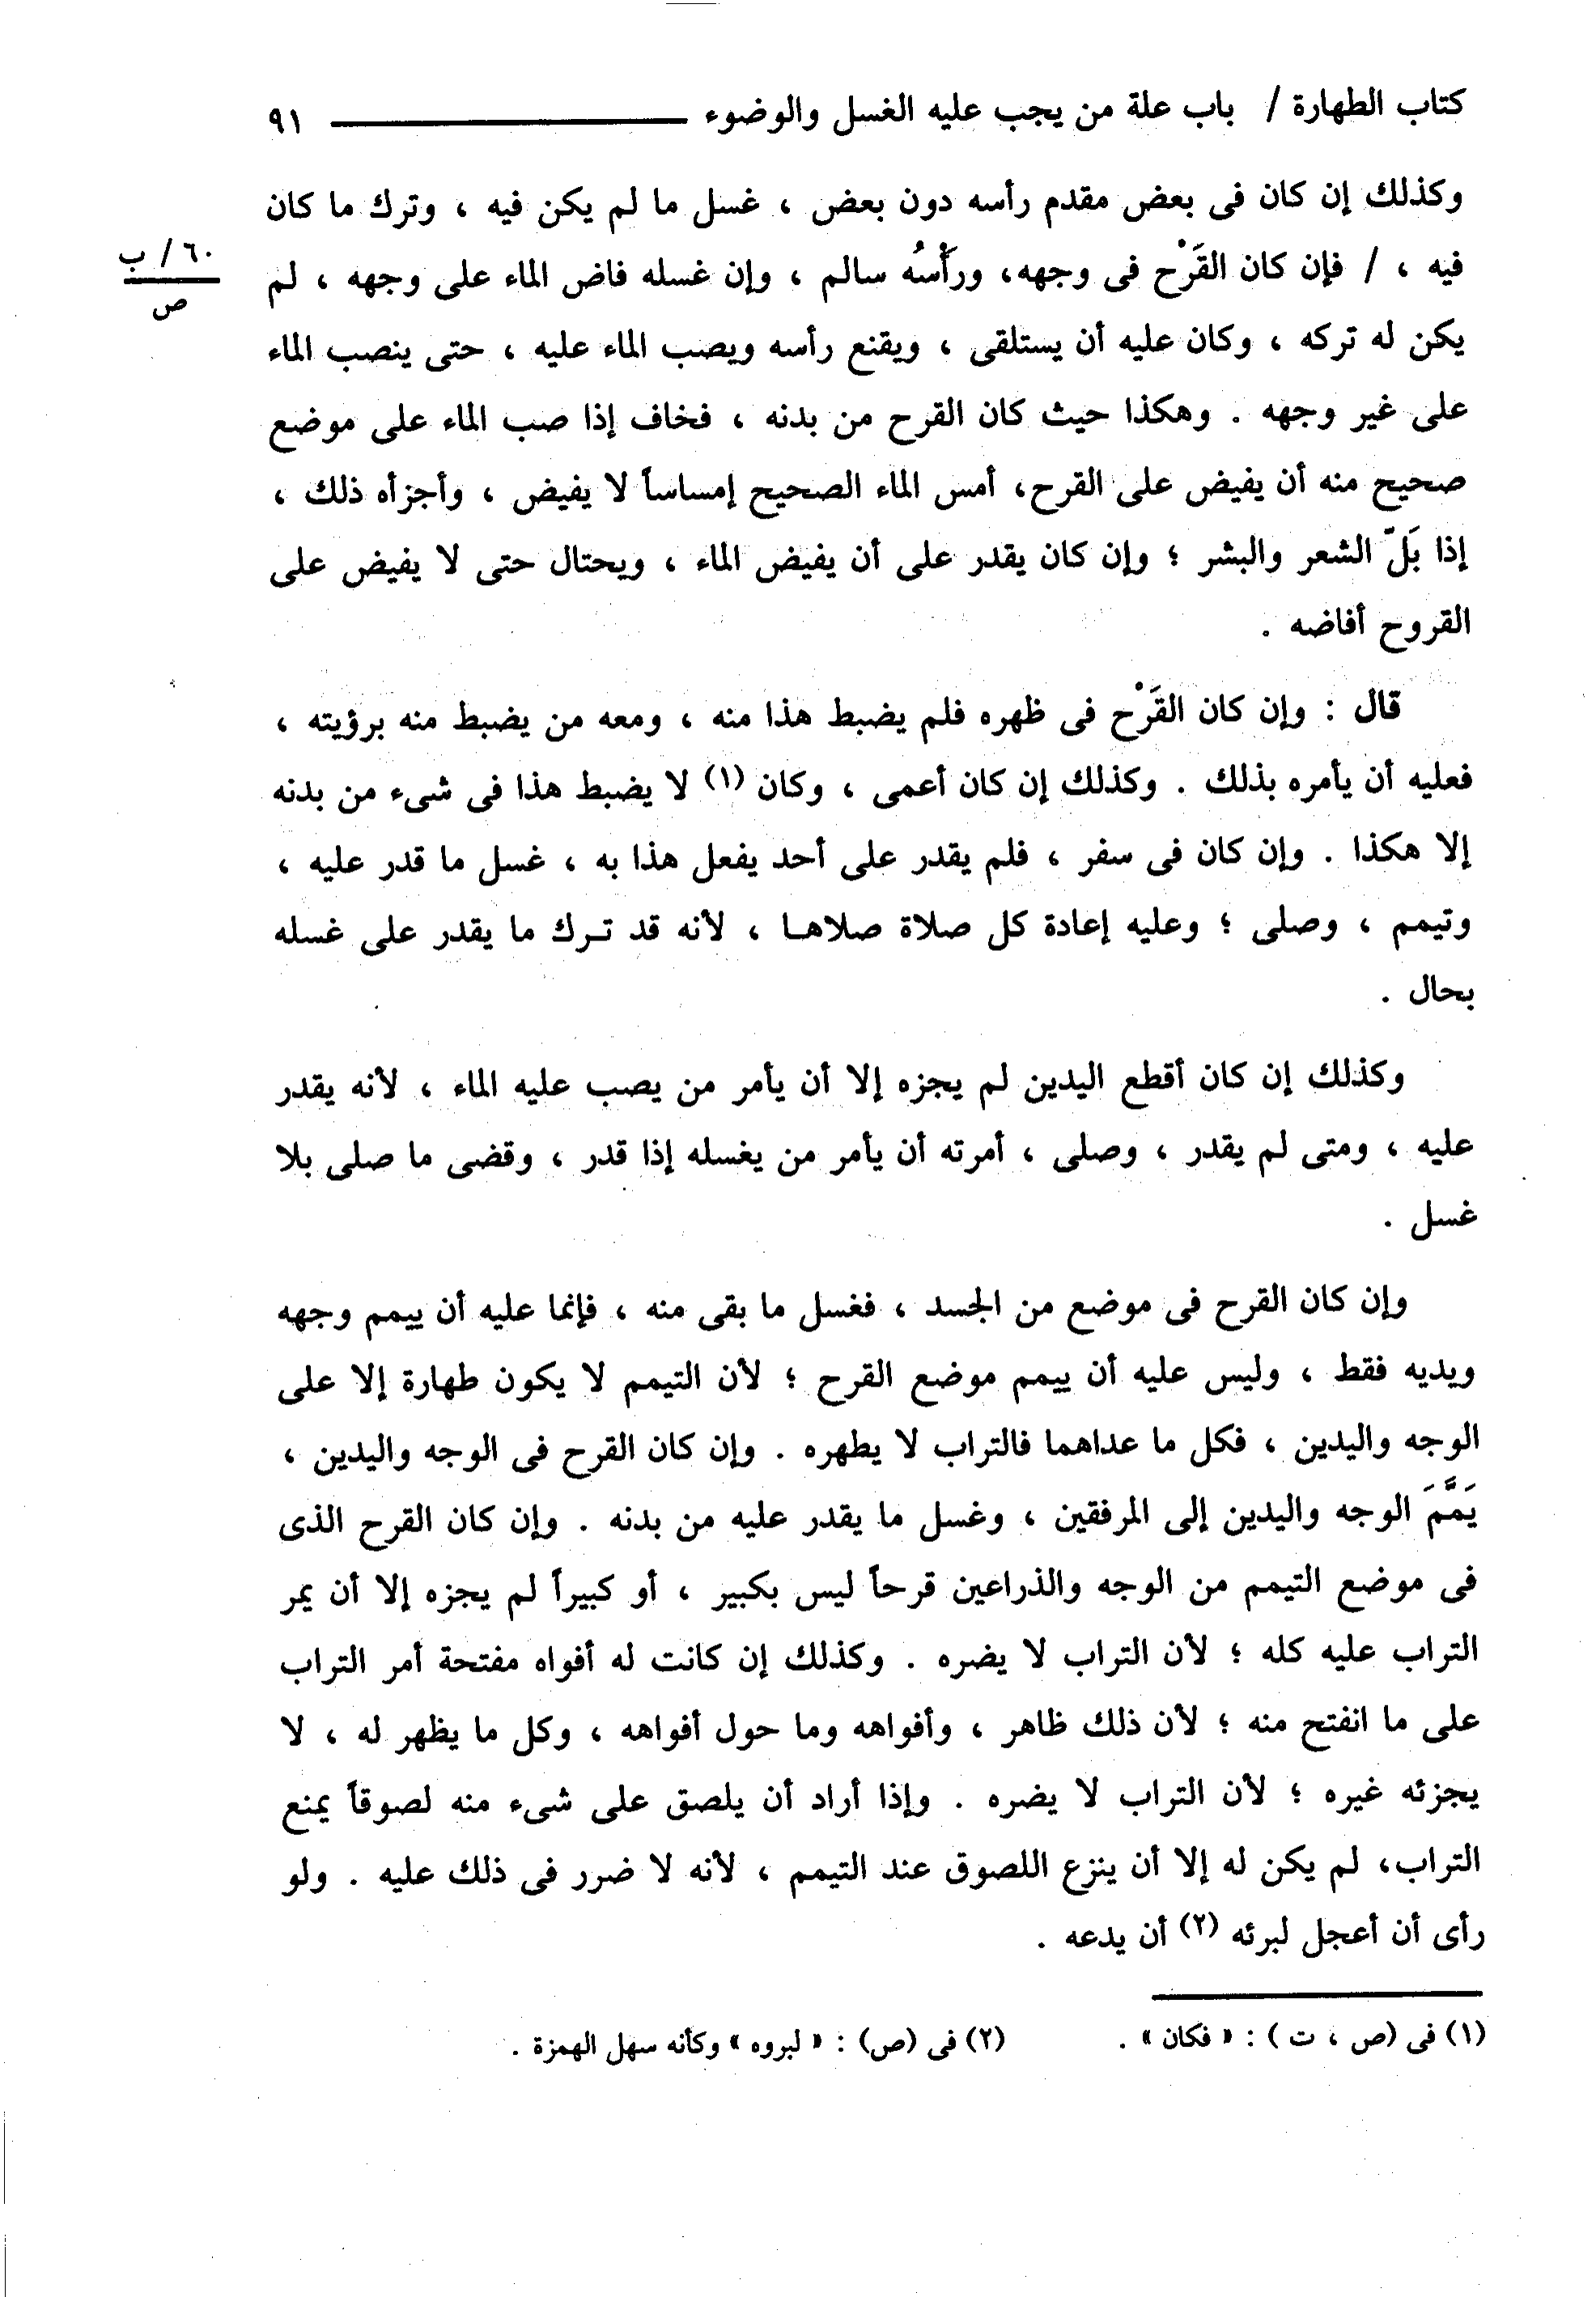 كتاب الطهارة / باب علة من يجب عليه الغسل والوضوء ــــــــــــــ ٩١
وكذلك إن كان فى بعض مقدم رأسه دون بعض ، غسل ما لم يكن فيه ، وترك ما كان
فيه ، / فإن كان القَرْح فى وجهه، ورَأْسُه سالم ، وإن غسله فاض الماء على وجهه ، لم
٦٠ / ب
ص
يكن له تركه ، وكان عليه أن يستلقى ، ويقنع رأسه ويصب الماء عليه ، حتى ينصب الماء
على غير وجهه . وهكذا حيث كان القرح من بدنه ، فخاف إذا صب الماء على موضع
صحيح منه أن يفيض على القرح، أمس الماء الصحيح إمساساً لا يفيض ، وأجزأه ذلك ،
إذا بَلّ الشعر والبشر ؛ وإن كان يقدر على أن يفيض الماء ، ويحتال حتى لا يفيض على
القروح أفاضه .
قال : وإن كان القَرْح فى ظهره فلم يضبط هذا منه ، ومعه من يضبط منه برؤيته ،
فعليه أن يأمره بذلك . وكذلك إن كان أعمى ، وكان (١) لا يضبط هذا فى شىء من بدنه
إلا هكذا . وإن كان فى سفر ، فلم يقدر على أحد يفعل هذا به ، غسل ما قدر عليه ،
وتيمم ، وصلى ؛ وعليه إعادة كل صلاة صلاهـا ، لأنه قد تـرك ما يقدر على غسله
بحال .
وكذلك إن كان أقطع اليدين لم يجزه إلا أن يأمر من يصب عليه الماء ، لأنه يقدر
عليه ، ومتى لم يقدر ، وصلى ، أمرته أن يأمر من يغسله إذا قدر ، وقضى ما صلى بلا
غسل .
وإن كان القرح فى موضع من الجسد ، فغسل ما بقى منه ، فإنما عليه أن ييمم وجهه
ويديه فقط ، وليس عليه أن ييمم موضع القرح ؛ لأن التيمم لا يكون طهارة إلا على
الوجه واليدين ، فكل ما عداهما فالتراب لا يطهره . وإن كان القرح فى الوجه واليدين ،
يَمَّمَ الوجه واليدين إلى المرفقين ، وغسل ما يقدر عليه من بدنه . وإن كان القرح الذى
فى موضع التيمم من الوجه والذراعين قرحاً ليس بكبير ، أو كبيراً لم يجزه إلا أن يمر
التراب عليه كله ؛ لأن التراب لا يضره . وكذلك إن كانت له أفواه مفتحة أمر التراب
على ما انفتح منه ؛ لأن ذلك ظاهر ، وأفواهه وما حول أفواهه ، وكل ما يظهر له ، لا
يجزئه غيره ؛ لأن التراب لا يضره . وإذا أراد أن يلصق على شىء منه لصوقاً يمنع
التراب، لم يكن له إلا أن ينزع اللصوق عند التيمم ، لأنه لا ضرر فى ذلك عليه . ولو
رأى أن أعجل لبرئه (٢) أن يدعه .
(١) فى (ص ، ت ) : « فكان » . (٢) فى (ص) : « لبروه » وكأنه سهل الهمزة .